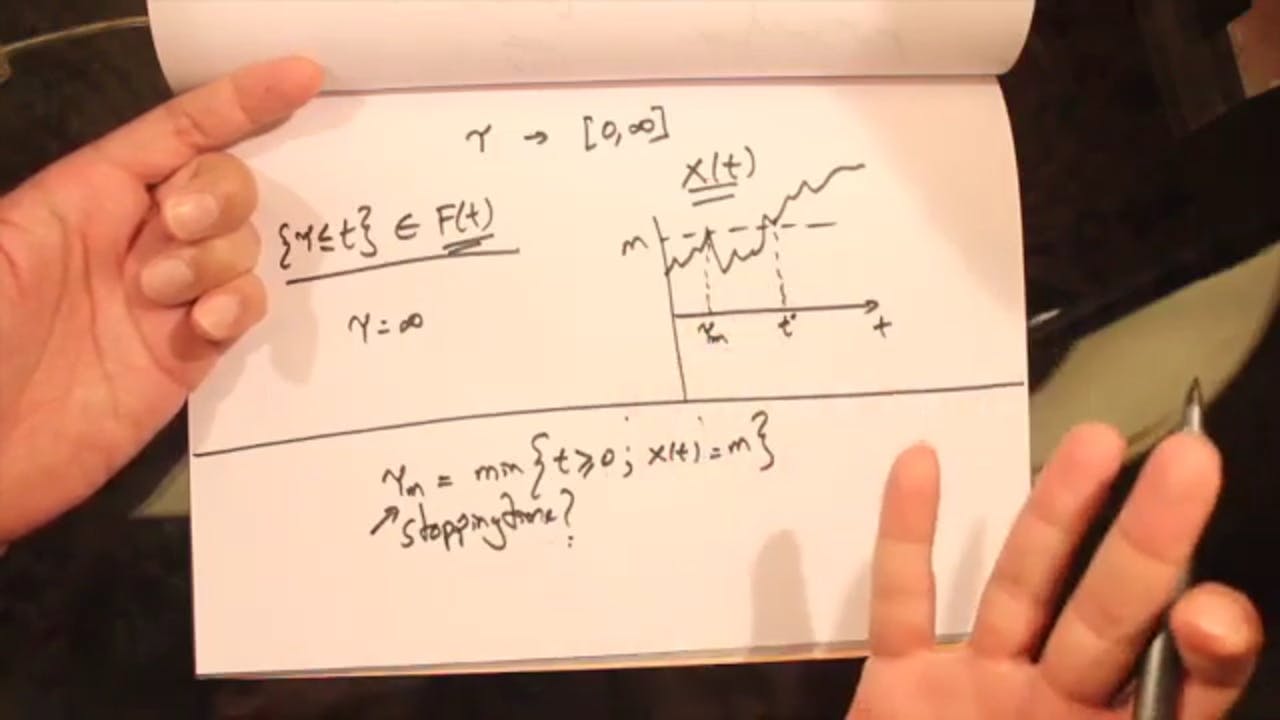 τ → [0,∞]
X(t)
{τ≤t} ∈ F(t)
m
τ=∞
τm t* t
τm = min{t≥0; X(t)=m}
↗stopping time?